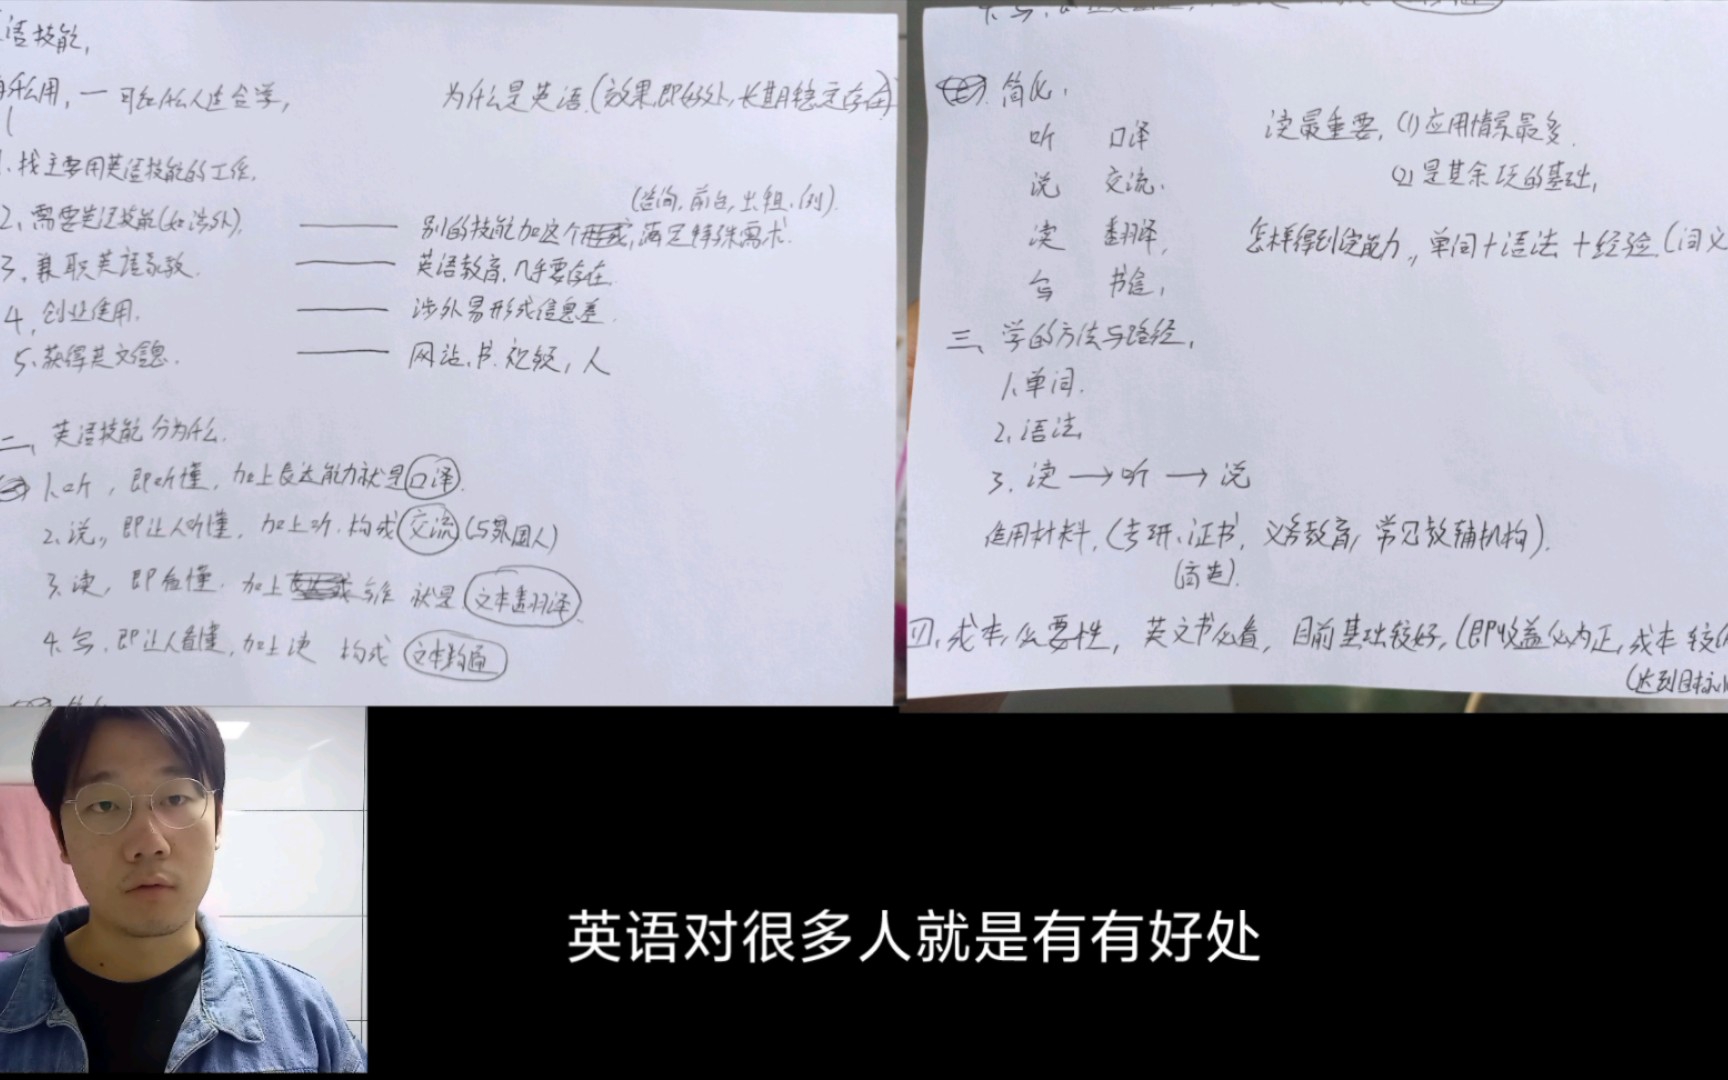 语技能,
有什么用,一可红什么人适合学,
为什么是英语.(效果,即好处,长期稳定存在)
1.找主要用英语技能的工作.
2、需要英语技能(如涉外).
(导向,前台,出租,例).
别的技能加这个,满足特殊需求.
3、兼职英语家教.
英语教育,几乎要存在.
4,创业使用.
涉外易形成信息差.
5、获得英文信息.
网站,书.视频,人
二、英语技能分为什么.
1、听,即听懂,加上表达能力就是口译.
2、说,即让人听懂,加上听.构成交流(与外国人)
3、读,即看懂.加上写作就是文本翻译.
4、写、即让人看懂,加上读 构成 文本沟通
简化,
听 口译
说 交流.
读 翻译,
写 书信,
读最重要,(1)应用情景最多.
(2)是其余项的基础,
怎样得到读能力,单词+语法+经验.(词义
三、学的方法与路径,
1、单词.
2、语法,
3、读→听→说
使用材料,(考研、证书,义务教育,常见教辅机构).
四、成本,必要性,英文书必看,目前基础较好,(即收益必为正,成本较
(达到目标
英语对很多人就是有有好处